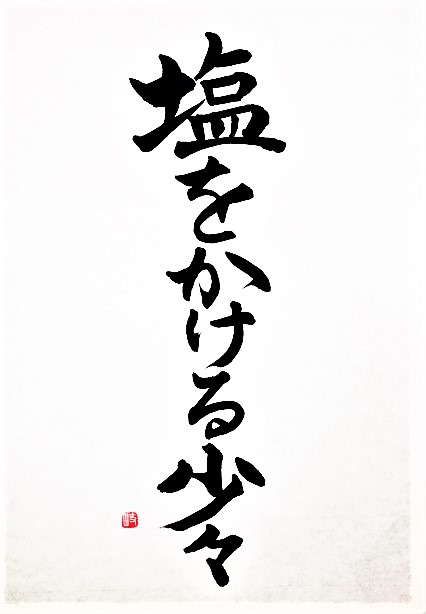 塩をかける少々